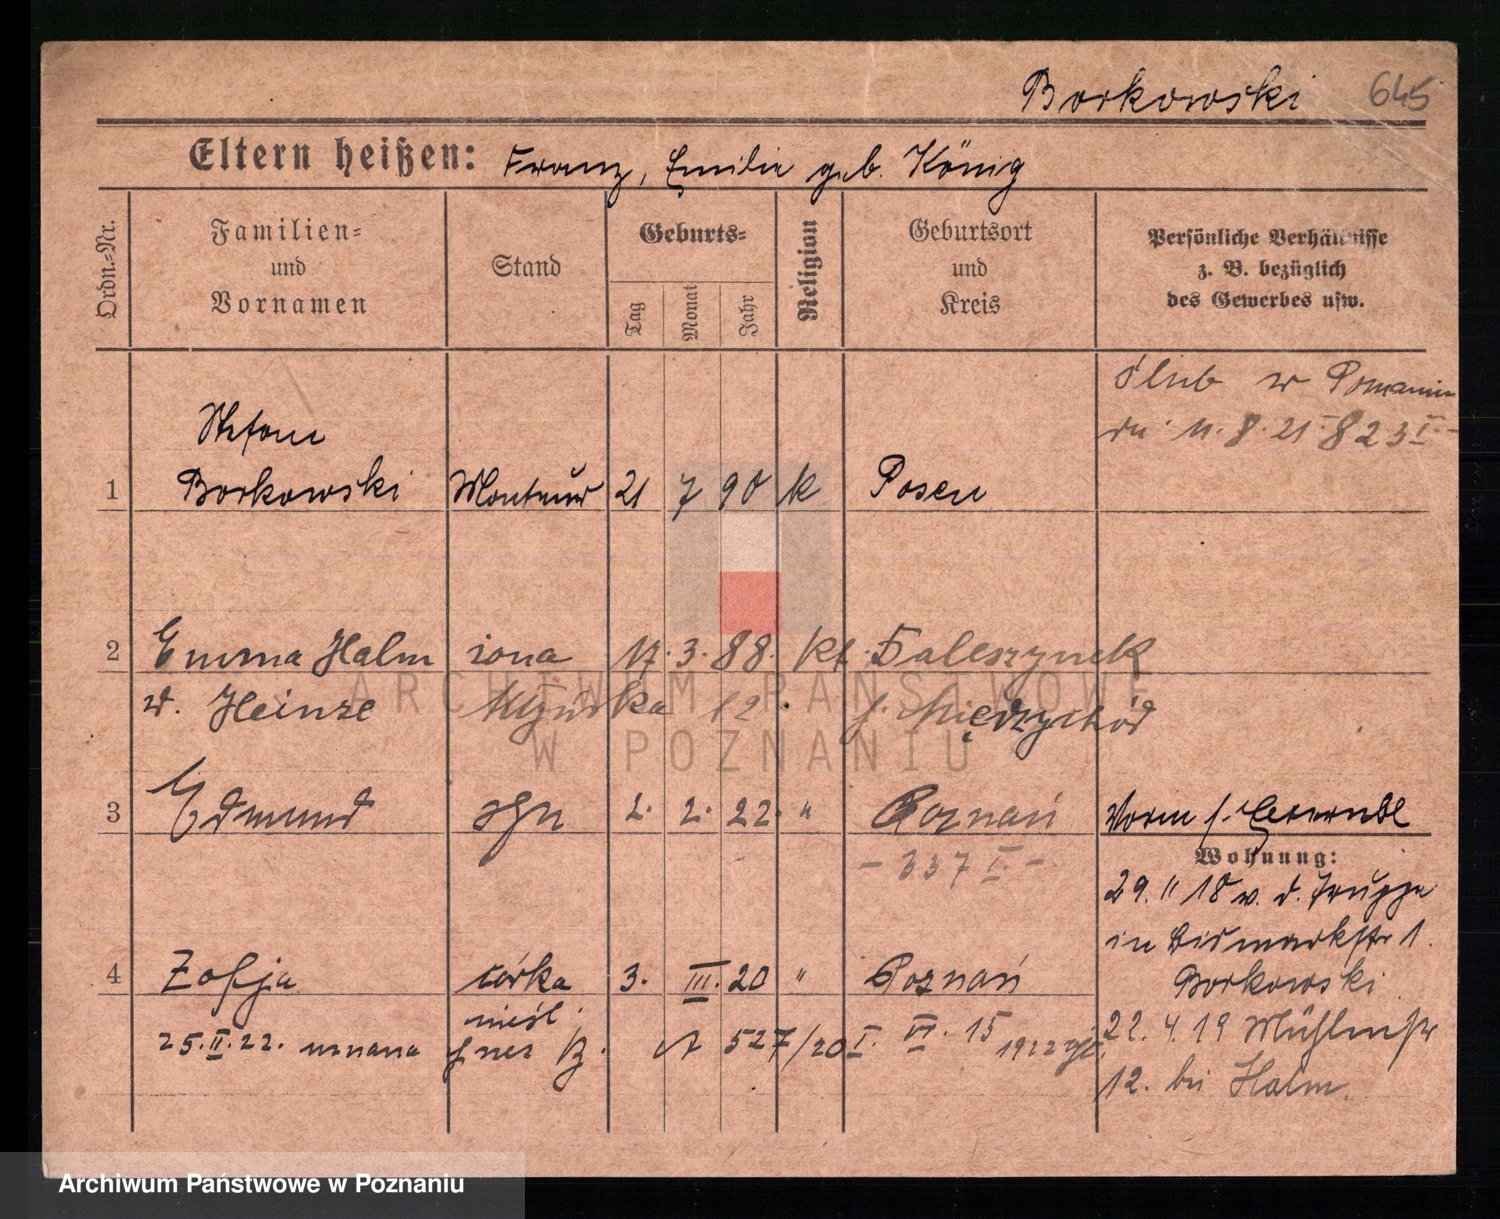 Borkowski 645
Eltern heißen: Franz, Emilie geb. König
Ordn.-Nr.
Familien-
und
Vornamen
Stand
Geburts-
Tag
Monat
Jahr
Religion
Geburtsort
und
Kreis
Persönliche Verhältnisse
z. B. bezüglich
des Gewerbes usw.
ślub w Poznaniu
dn. 11. 8. 21 823 I -
Stefan
1 Borkowski Monteur 21 7 90 k Posen
2 Emma Halm żona 17. 3. 88. kt.
w. Heinze 12 p. Międzychód
3 Edmund syn 2. 2. 22. " Poznań
- 337 I. -
Vorm f.
Wohnung:
29. 11 18 v. d. Truppe
in Bismarkstr 1.
Borkowski
22. 4. 19 Mühlenstr
12. bei Halm.
4 Zofja córka 3. III. 20 " Poznań
nieśl.
25. II. 22. uznana przez A 527/20 I. VI. 15 1922
ARCHIWUM PAŃSTWOWE
W POZNANIU
Archiwum Państwowe w Poznaniu